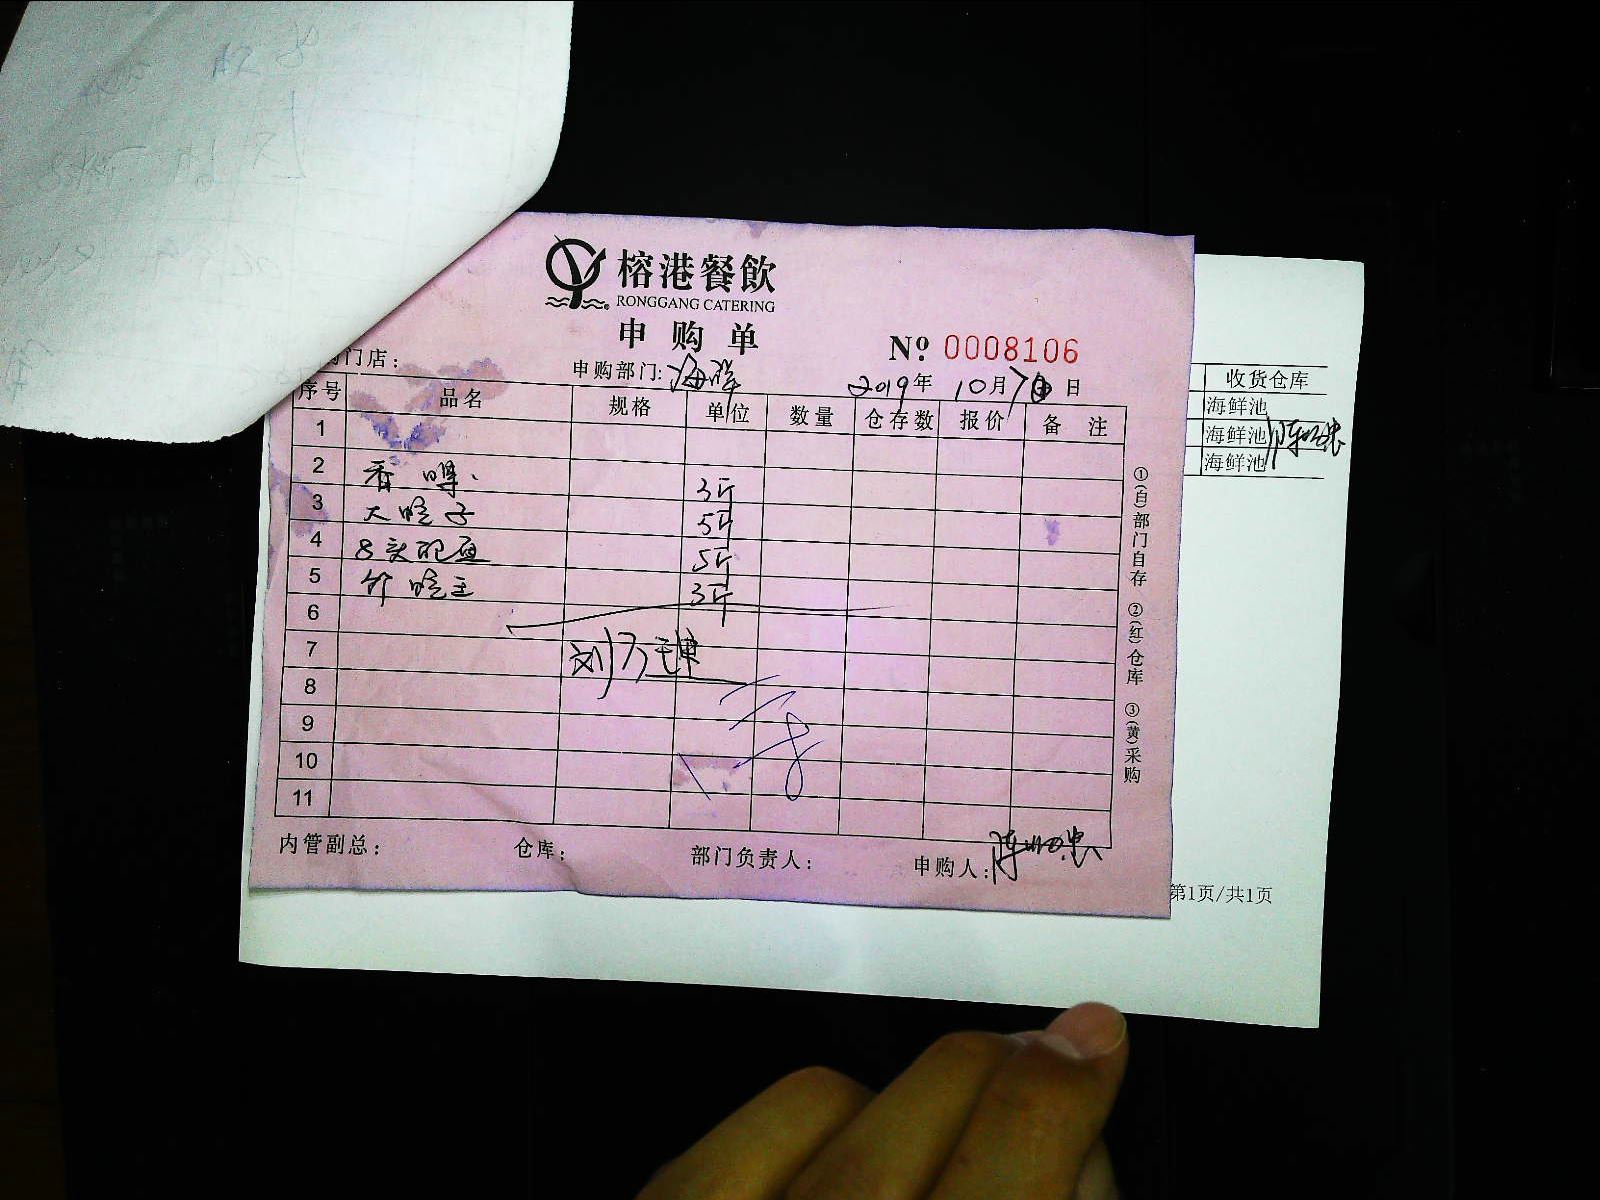 榕港餐飲
RONGGANG CATERING
申购单
№ 0008106
门店：
申购部门：海鲜
2019年 10月7日
序号 品名 规格 单位 数量 仓存数 报价 备 注
1
2 香螺 3斤
3 大 子 5斤
4 8头 5斤
5 3斤
6
7
8
9
10
11
①(白)部门自存 ②(红)仓库 ③(黄)采购
内管副总： 仓库： 部门负责人： 申购人：陈 忠
收货仓库
海鲜池
海鲜池
海鲜池
第1页/共1页